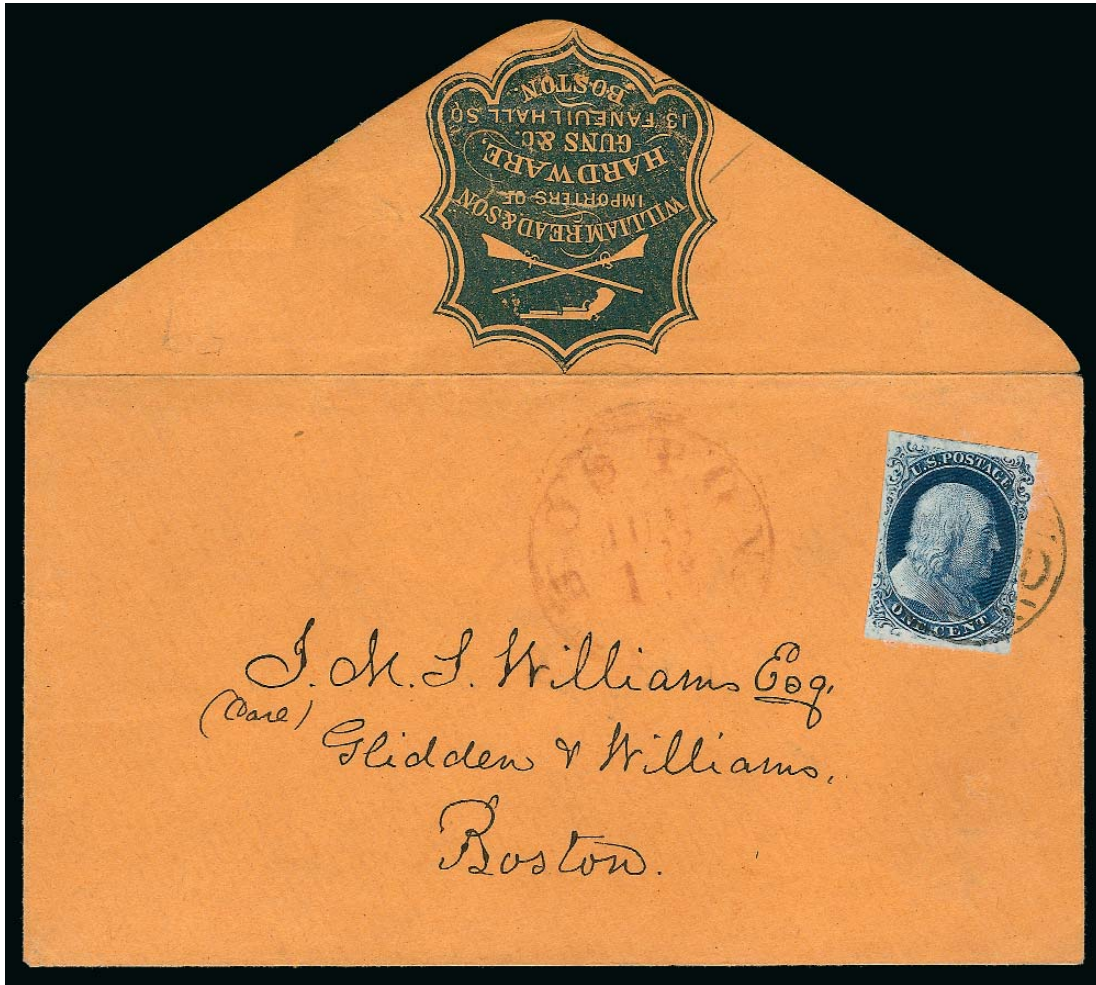 WILLIAM READ & SON
IMPORTERS OF
HARDWARE,
GUNS &C.
13 FANEUIL HALL SQ
BOSTON.
BOSTON
U.S. POSTAGE
ONE CENT
J. M. S. Williams Esq.
(Care)
Glidden & Williams,
Boston.